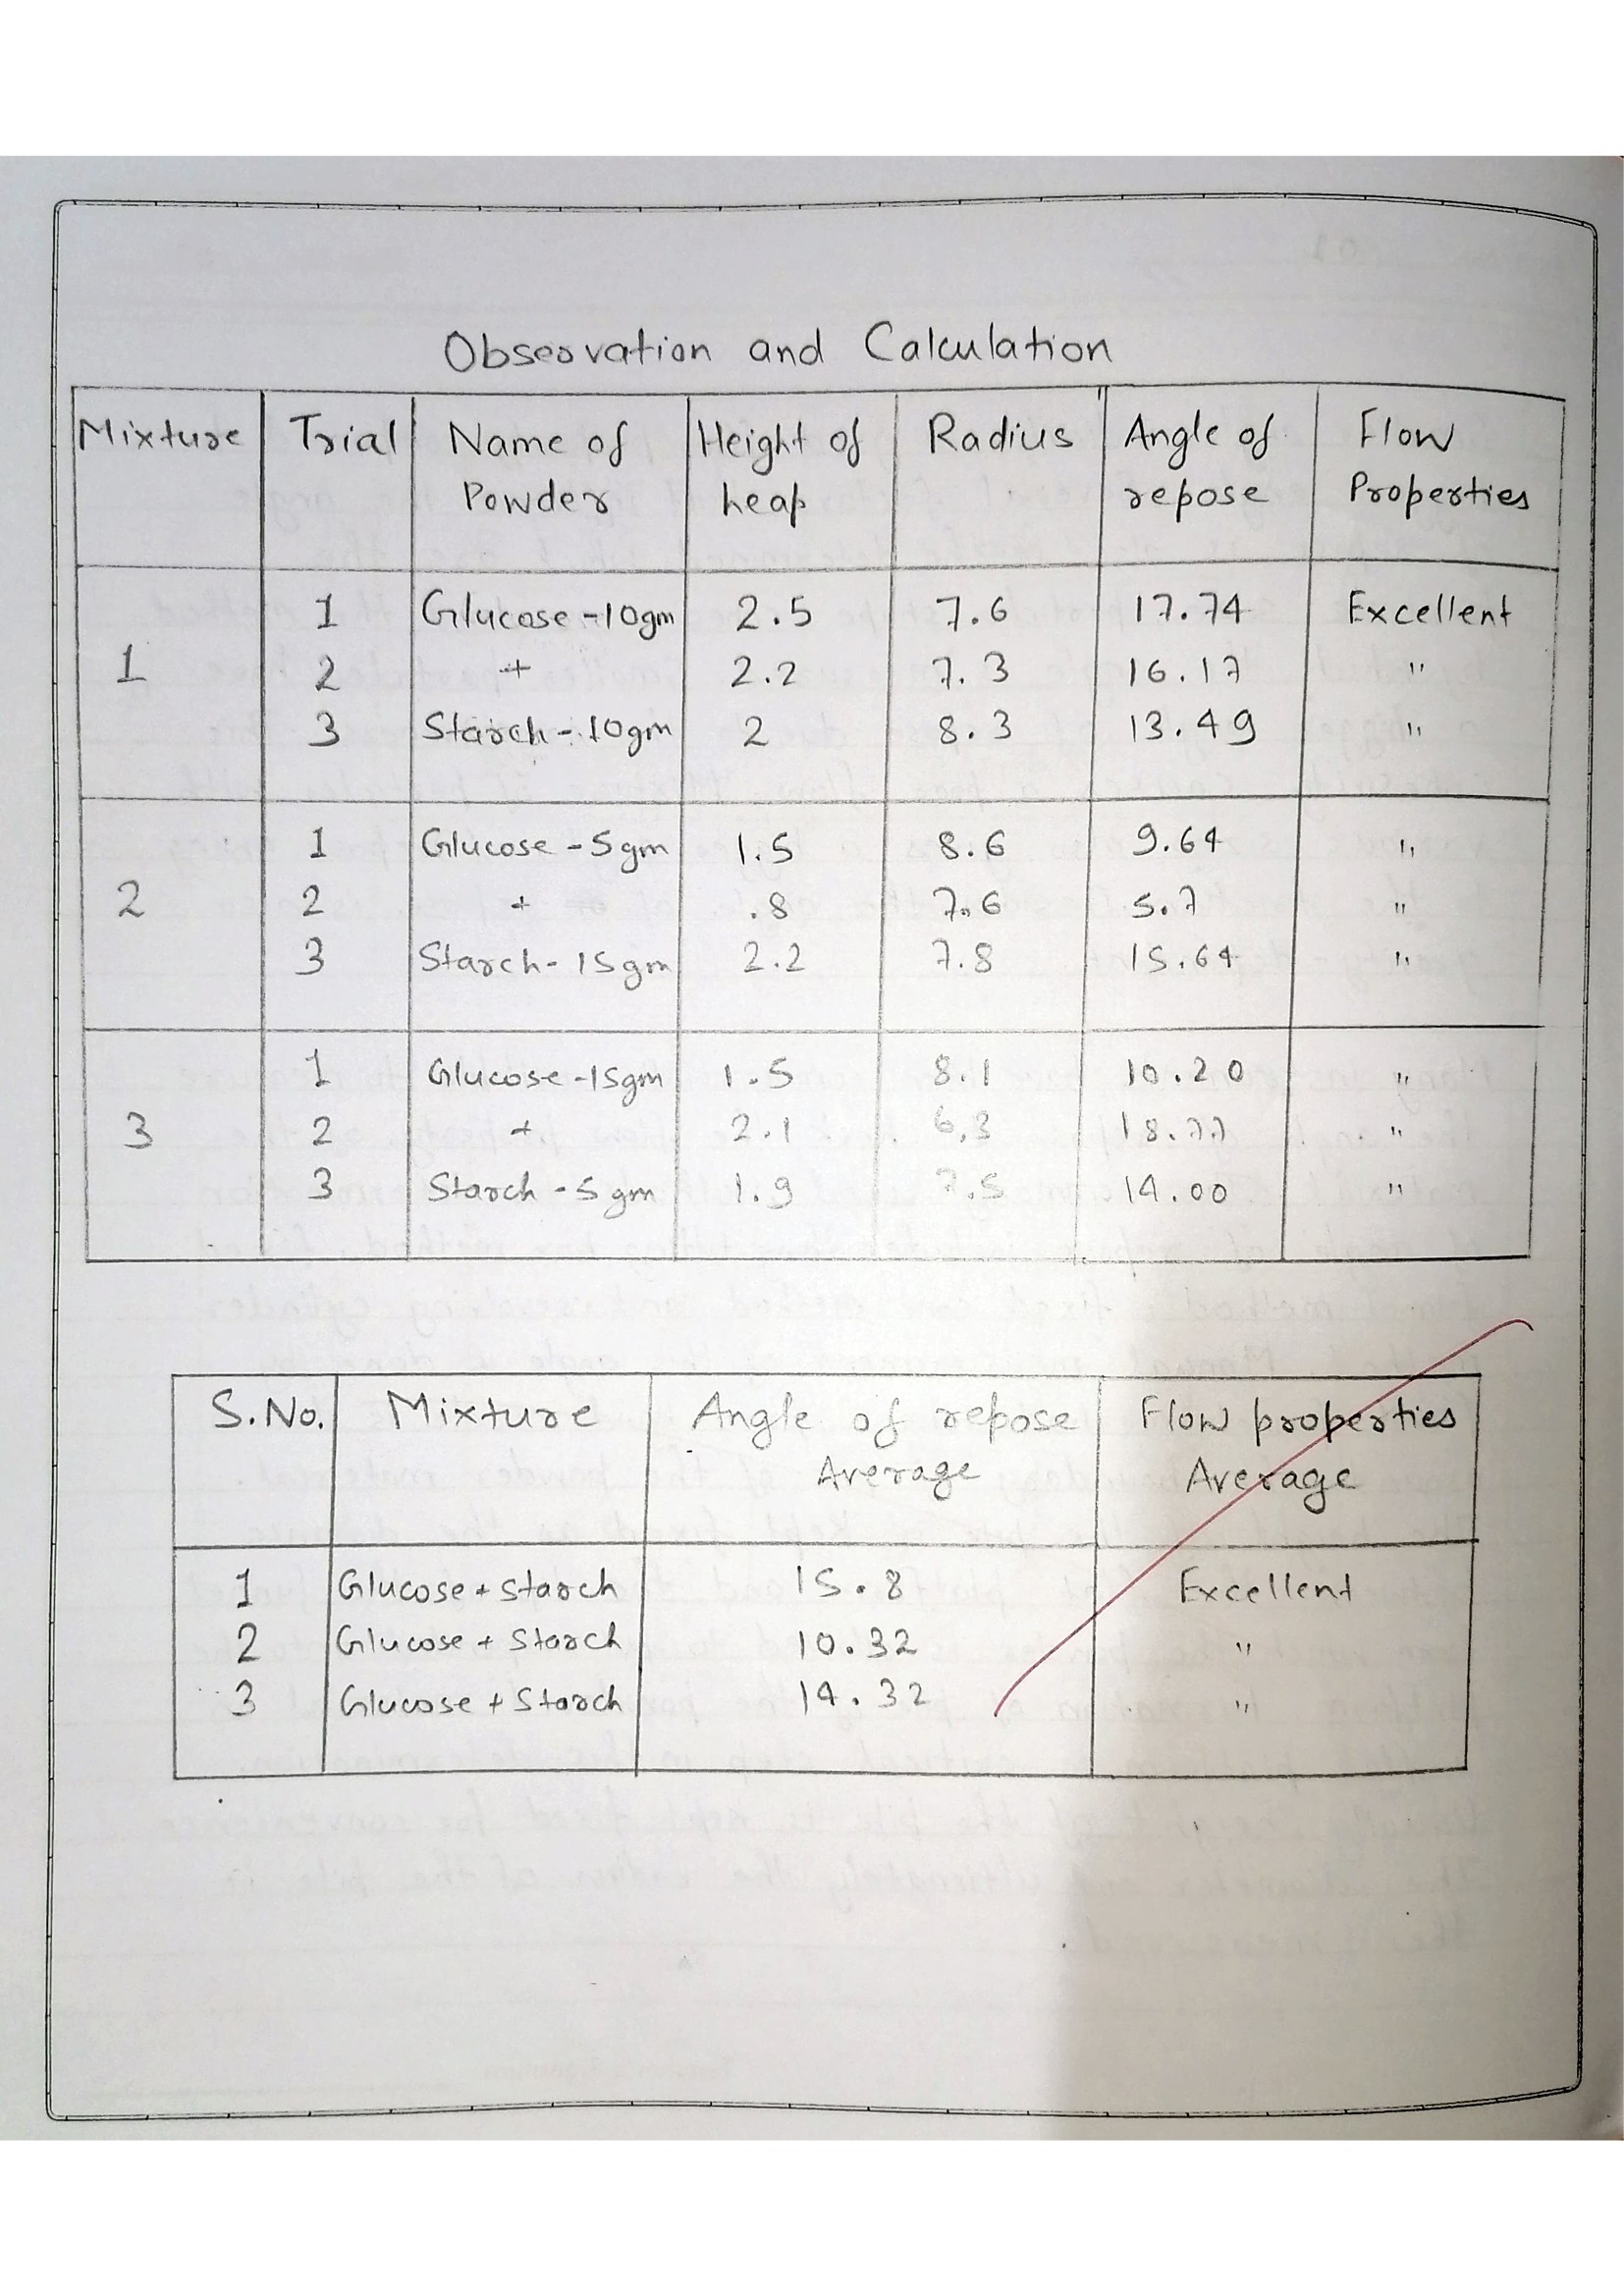 Observation and Calculation
Mixture Trial Name of Powder Height of heap Radius Angle of repose Flow Properties
1 Glucose - 10gm 2.5 7.6 17.74 Excellent
1 2 + 2.2 7.3 16.17 "
3 Starch - 10gm 2 8.3 13.49 "
1 Glucose - 5gm 1.5 8.6 9.64 "
2 2 + .8 7.6 5.7 "
3 Starch - 15gm 2.2 7.8 15.64 "
1 Glucose - 15gm 1.5 8.1 10.20 "
3 2 + 2.1 6.3 18.77 "
3 Starch - 5gm 1.9 7.5 14.00 "
S.No. Mixture Angle of repose Average Flow properties Average
1 Glucose + Starch 15.8 Excellent
2 Glucose + Starch 10.32 "
3 Glucose + Starch 14.32 "